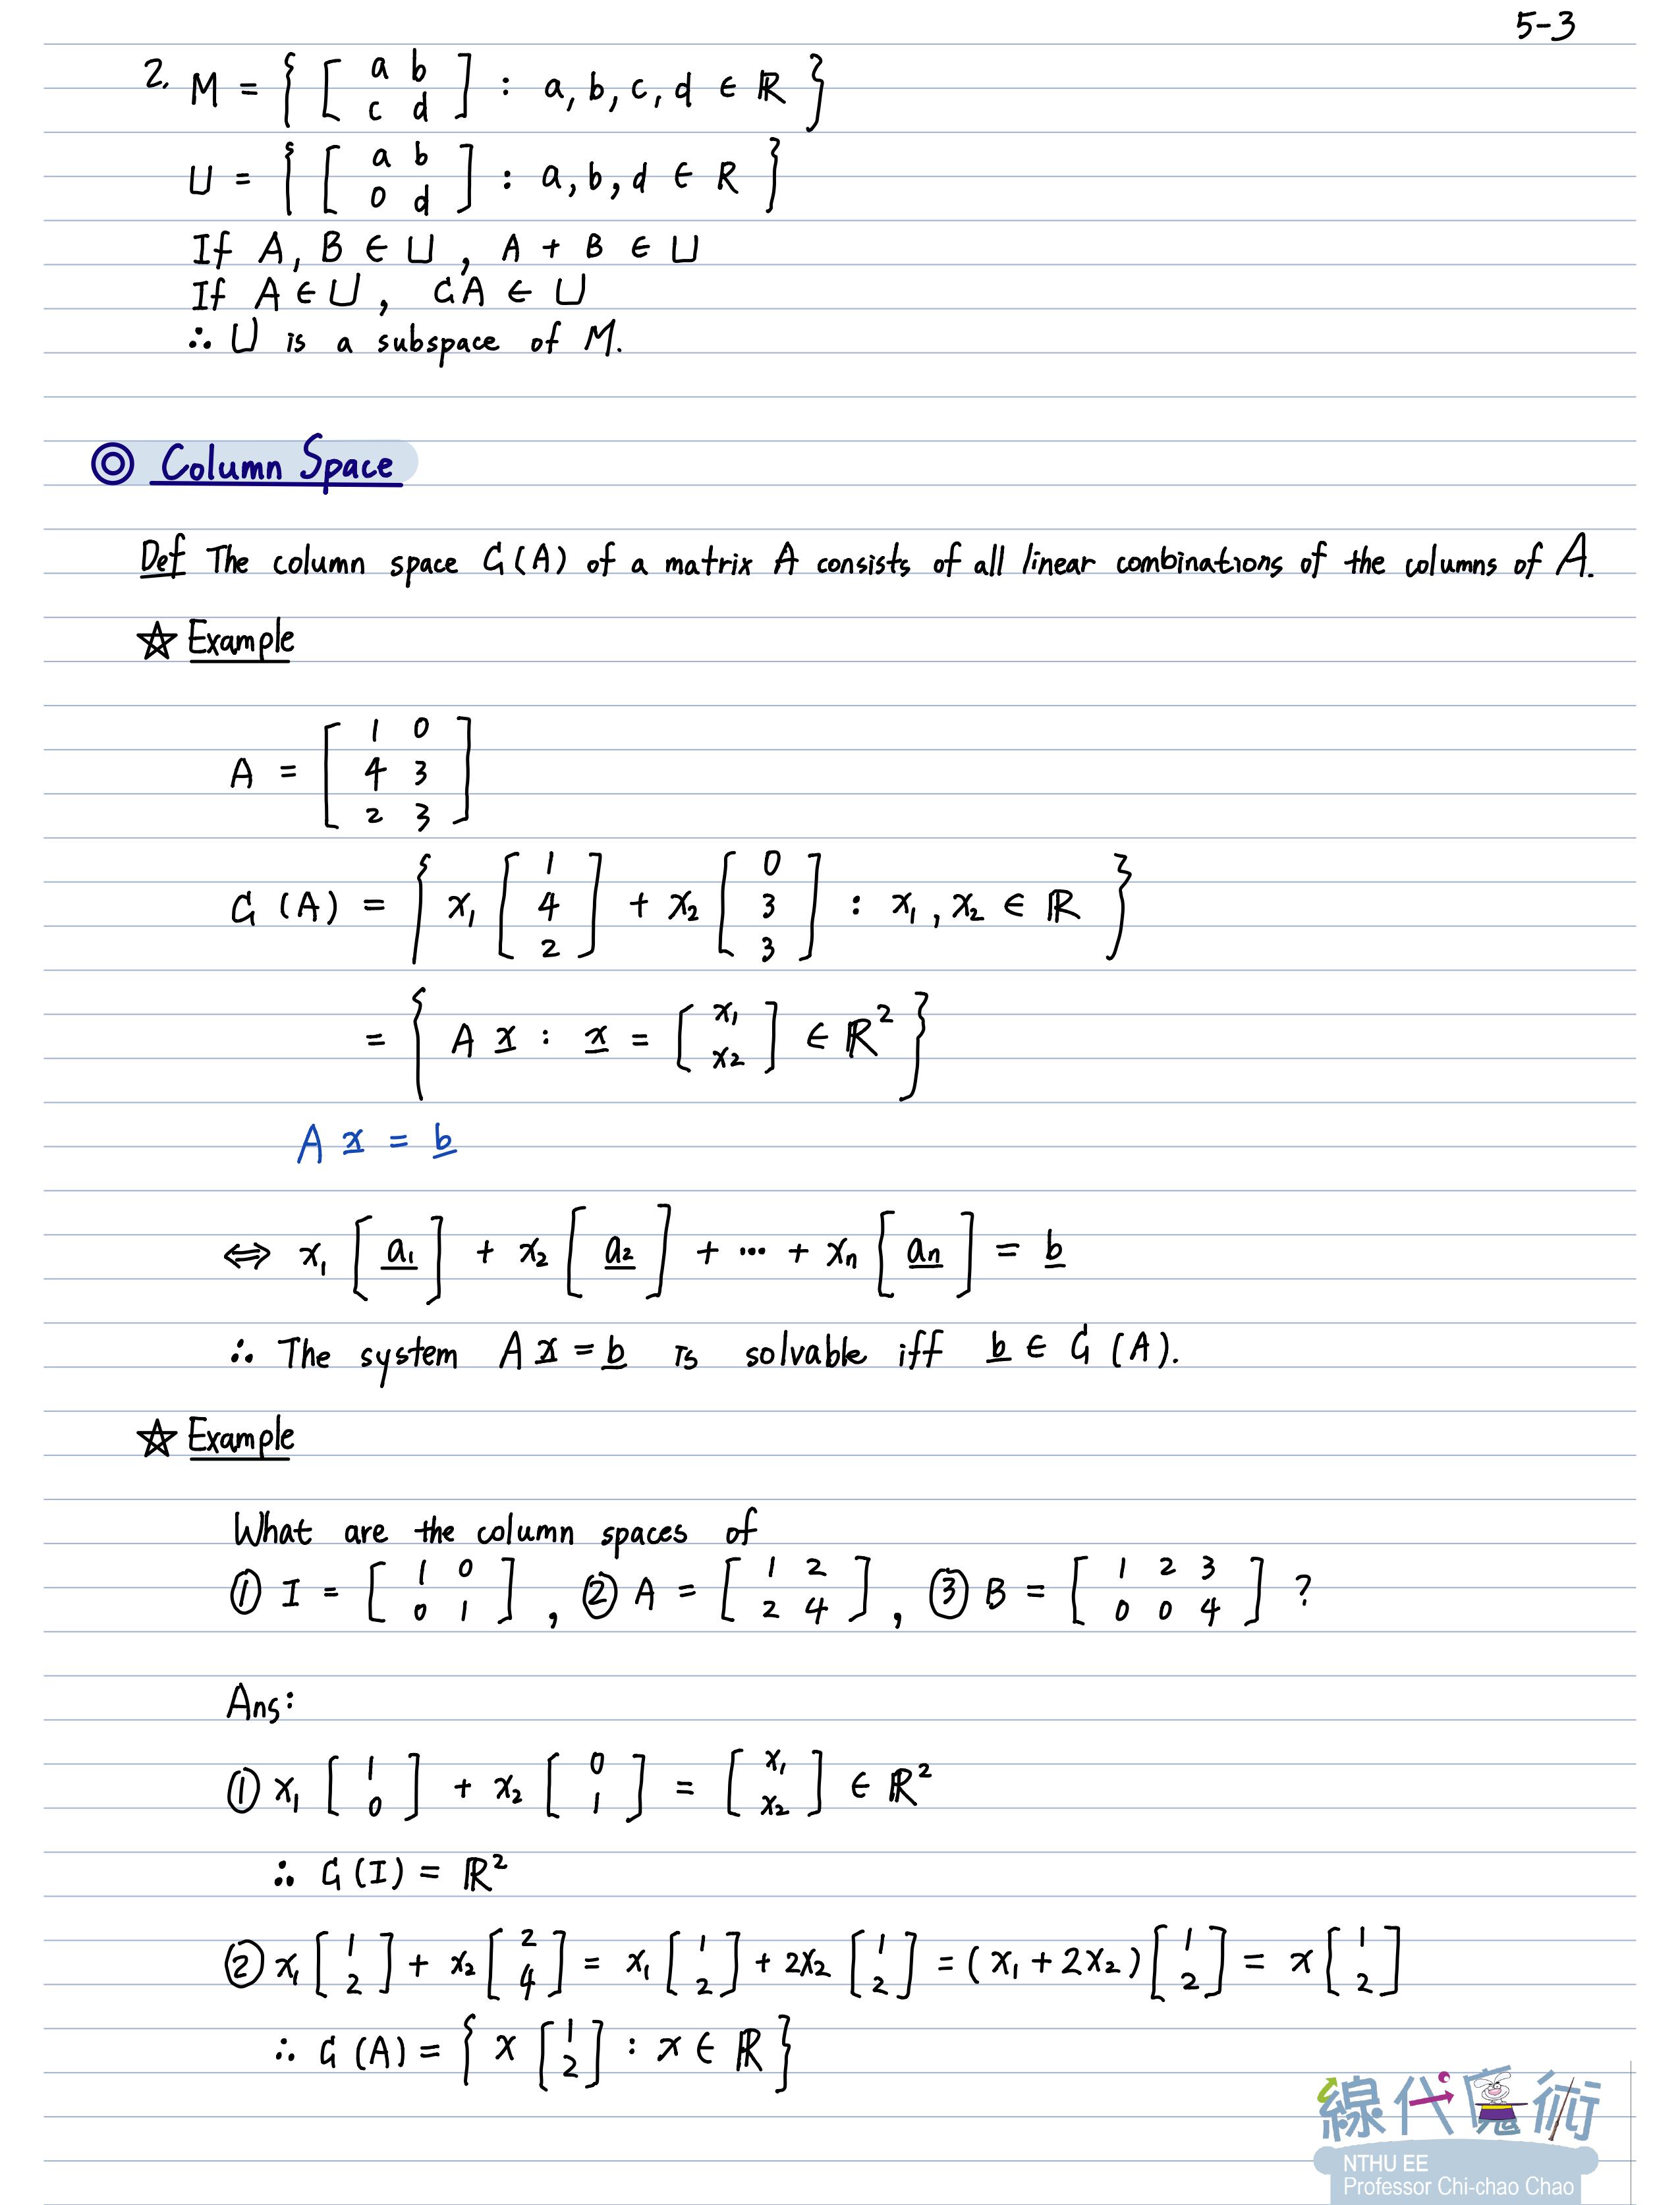 5-3
2. M = { [ a b ; c d ] : a, b, c, d ∈ ℝ }
U = { [ a b ; 0 d ] : a, b, d ∈ R }
If A, B ∈ U , A + B ∈ U
If A ∈ U , CA ∈ U
∴ U is a subspace of M.
◎ Column Space
Def The column space C(A) of a matrix A consists of all linear combinations of the columns of A.
☆ Example
A = [ 1 0 ; 4 3 ; 2 3 ]
C (A) = { x₁ [ 1 ; 4 ; 2 ] + x₂ [ 0 ; 3 ; 3 ] : x₁ , x₂ ∈ ℝ }
= { A x : x = [ x₁ ; x₂ ] ∈ ℝ² }
A x = b
⟺ x₁ [ a₁ ] + x₂ [ a₂ ] + ⋯ + xₙ [ aₙ ] = b
∴ The system A x = b is solvable iff b ∈ C (A).
☆ Example
What are the column spaces of
① I = [ 1 0 ; 0 1 ] , ② A = [ 1 2 ; 2 4 ] , ③ B = [ 1 2 3 ; 0 0 4 ] ?
Ans:
① x₁ [ 1 ; 0 ] + x₂ [ 0 ; 1 ] = [ x₁ ; x₂ ] ∈ ℝ²
∴ C (I) = ℝ²
② x₁ [ 1 ; 2 ] + x₂ [ 2 ; 4 ] = x₁ [ 1 ; 2 ] + 2x₂ [ 1 ; 2 ] = ( x₁ + 2x₂ ) [ 1 ; 2 ] = x [ 1 ; 2 ]
∴ C (A) = { x [ 1 ; 2 ] : x ∈ ℝ }
線代魔術
NTHU EE
Professor Chi-chao Chao